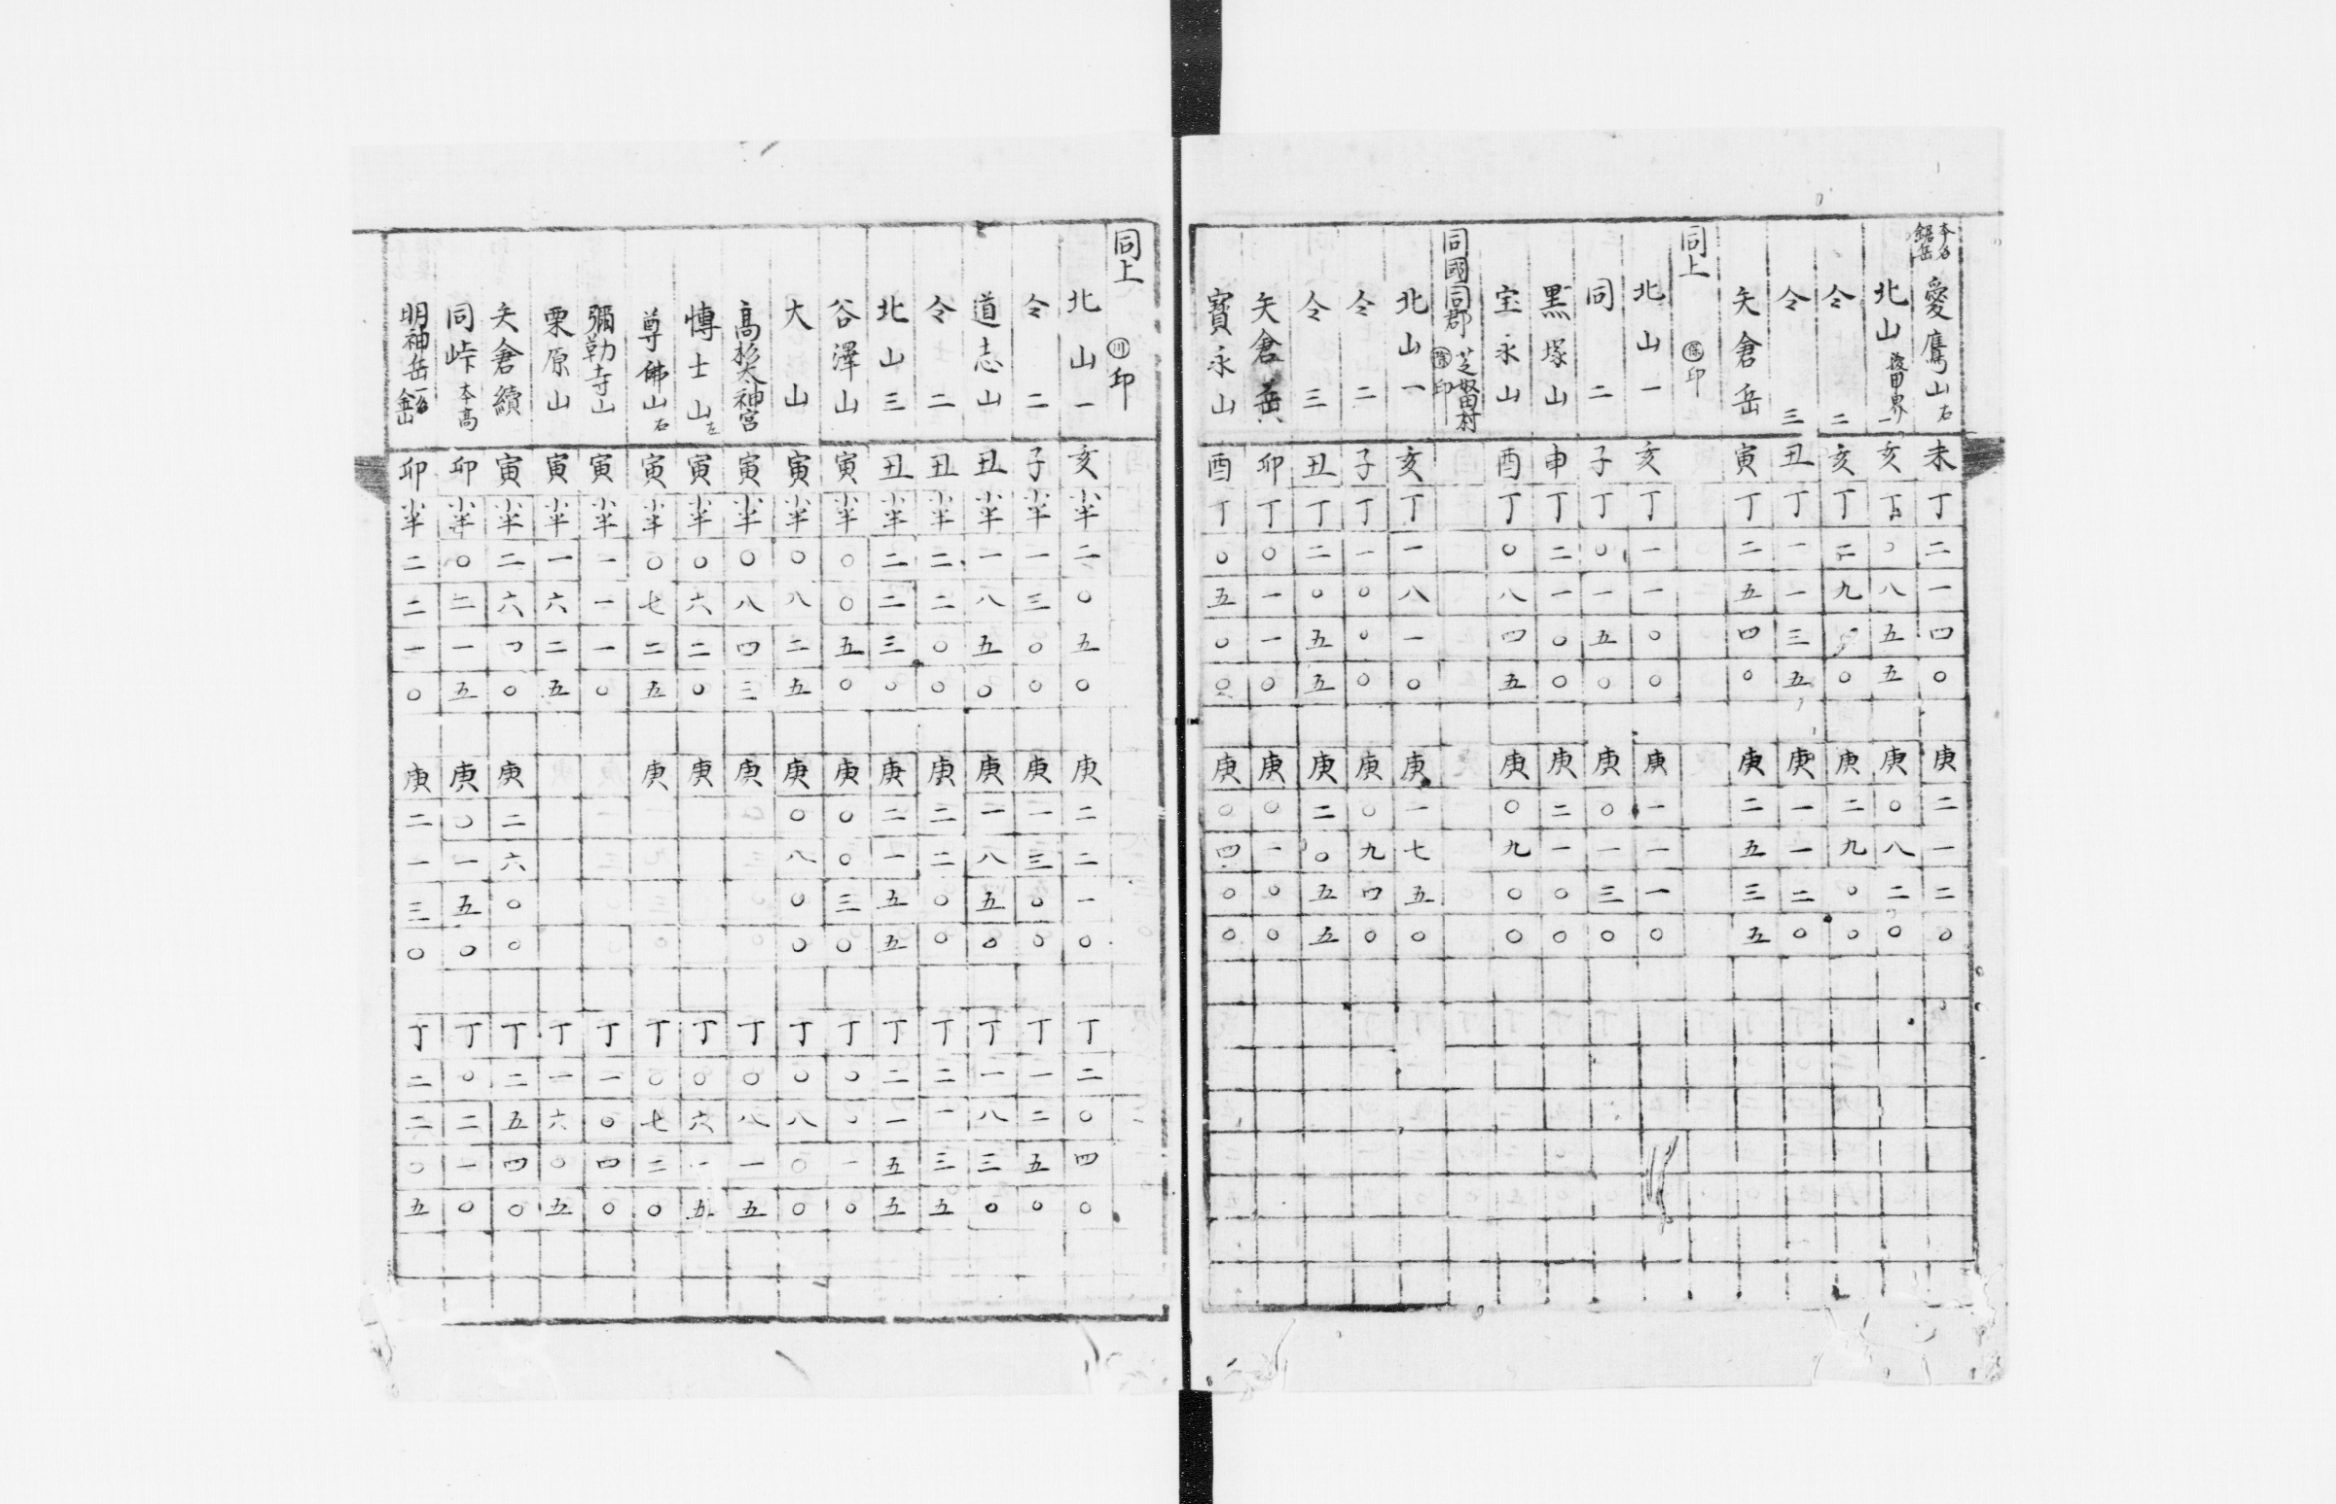 本名鋸岳 愛鷹山右 未 丁 二 一 四 〇 庚 二 一 二 〇
北山 界一 亥 丁 〇 八 五 五 庚 〇 八 二 〇
仝 二 亥 丁 二 九 〇 庚 二 九 〇 〇
仝 三 丑 丁 一 一 三 五 庚 一 一 二 〇
矢倉岳 寅 丁 二 五 四 〇 庚 二 五 三 五
同上 印
北山一 亥 丁 一 一 〇 〇 庚 一 一 一 〇
同二 子 丁 〇 一 五 〇 庚 〇 一 三 〇
黒塚山 申 丁 二 一 〇 〇 庚 二 一 〇 〇
宝永山 酉 丁 〇 八 四 五 庚 〇 九 〇 〇
同國同郡 芝怒田村 印
北山一 亥 丁 一 八 一 〇 庚 一 七 五 〇
仝 二 子 丁 一 〇 〇 〇 庚 〇 九 四 〇
仝 三 丑 丁 二 〇 五 五 庚 二 〇 五 五
矢倉岳 卯 丁 〇 一 一 〇 庚 〇 一 〇 〇
寳永山 酉 丁 〇 五 〇 〇 庚 〇 四 〇 〇
同上 川印
北山一 亥 小半 二 〇 五 〇 庚 二 二 一 〇 丁 二 〇 四 〇
仝 二 子 小半 一 三 〇 〇 庚 一 三 〇 〇 丁 一 二 五 〇
道志山 丑 小半 一 八 五 〇 庚 一 八 五 〇 丁 一 八 三 〇
仝 二 丑 小半 二 二 〇 〇 庚 二 二 〇 〇 丁 二 一 三 五
北山三 丑 小半 二 二 三 〇 庚 二 一 五 五 丁 二 一 五 五
谷澤山 寅 小半 〇 〇 五 〇 庚 〇 〇 三 〇 丁 〇 〇 一 〇
大山 寅 小半 〇 八 二 五 庚 〇 八 〇 〇 丁 〇 八 〇 〇
高杉太神宮 寅 小半 〇 八 四 三 庚 丁 〇 八 一 五
博士山左 寅 小半 〇 六 二 〇 庚 丁 〇 六 一 五
尊佛山右 寅 小半 〇 七 二 五 庚 丁 〇 七 二 〇
彌勒寺山 寅 小半 一 一 一 〇 丁 一 〇 四 〇
栗原山 寅 小半 一 六 二 五 丁 一 六 〇 五
矢倉續 寅 小半 二 六 四 〇 庚 二 六 〇 〇 丁 二 五 四 〇
同峠 本高 卯 小半 〇 二 一 五 庚 〇 一 五 〇 丁 〇 二 一 〇
明神岳 卯 小半 二 二 一 〇 庚 二 一 三 〇 丁 二 二 〇 五